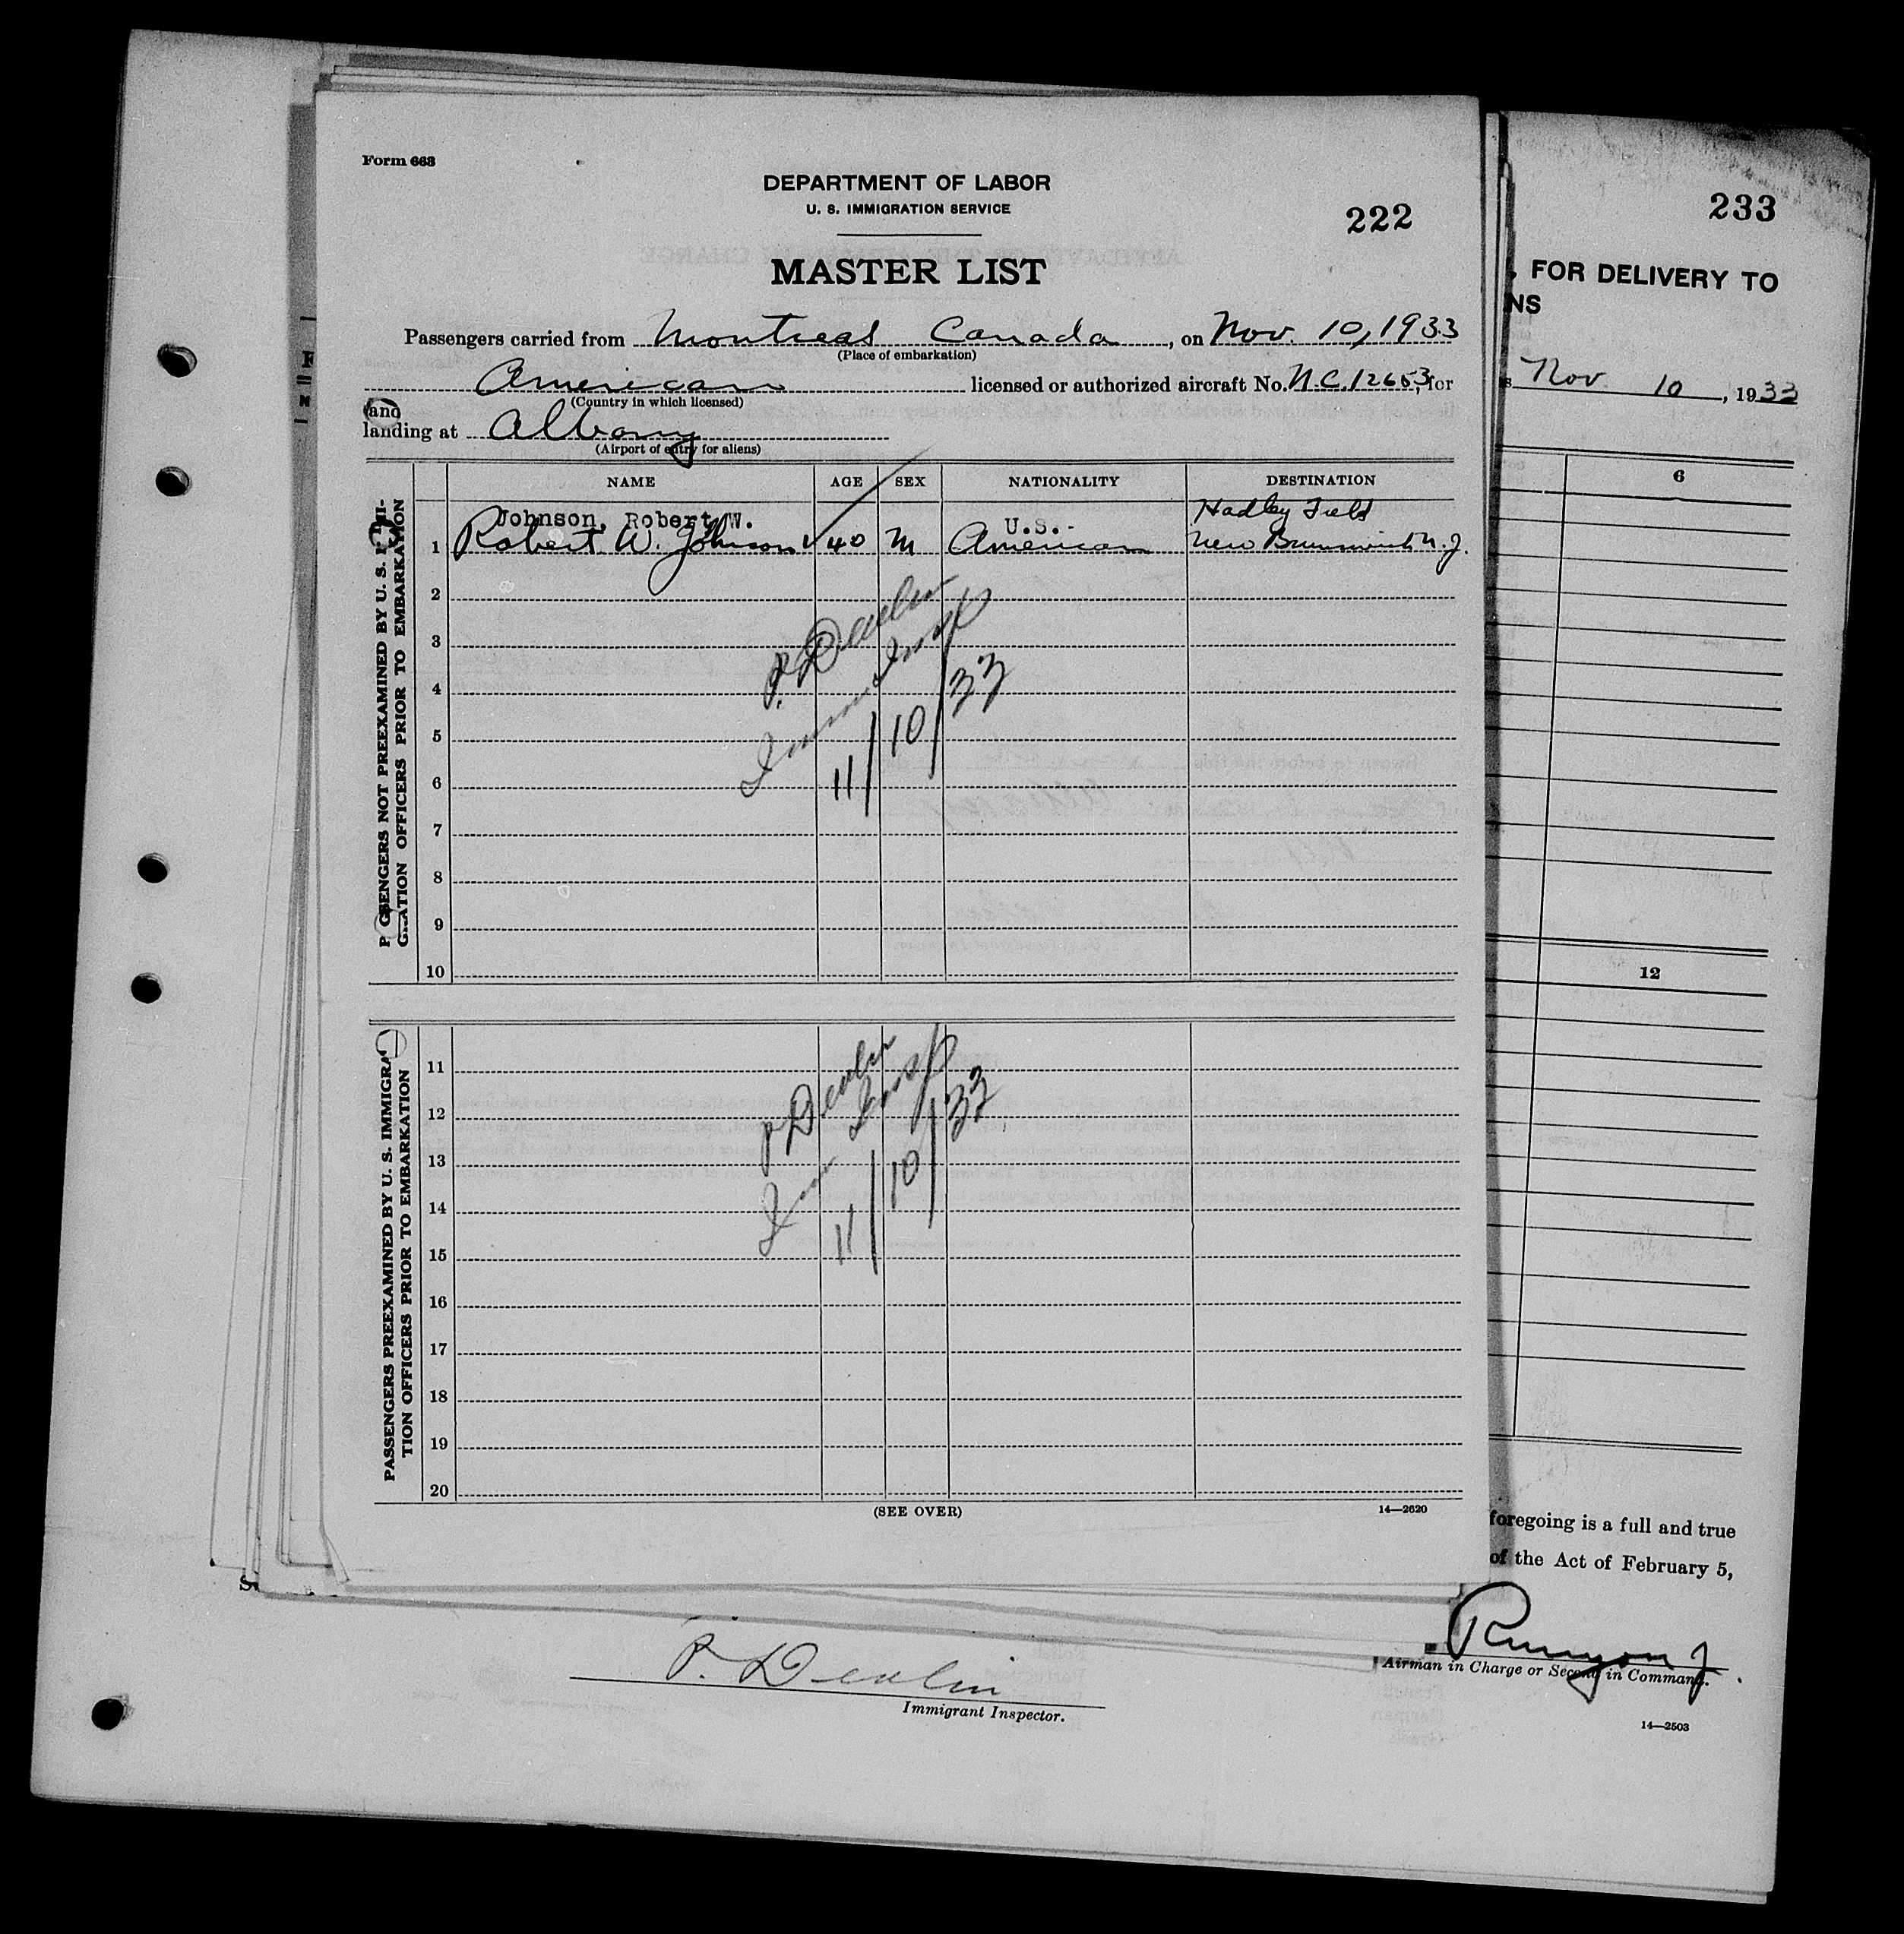 Form 663
DEPARTMENT OF LABOR
U. S. IMMIGRATION SERVICE
222
MASTER LIST
Passengers carried from Montreal Canada, on Nov. 10, 1933
(Place of embarkation)
American licensed or authorized aircraft No. N.C. 12653, for
(Country in which licensed)
and
landing at Albany
(Airport of entry for aliens)
NAME AGE SEX NATIONALITY DESTINATION
Johnson, Robert W. U.S. Hadley Field
1 Robert W. Johnson 40 M American New Brunswick N.J.
2
3
4
5
6
7
8
9
10
P. Devlin
Immig Insp
11/10/33
GRATION OFFICERS PRIOR TO EMBARKATION
11
12
13
14
15
16
17
18
19
20
P. Devlin
Imm Insp
11/10/33
PASSENGERS PREEXAMINED BY U. S. IMMIGRA
TION OFFICERS PRIOR TO EMBARKATION
(SEE OVER)
14—2620
233
, FOR DELIVERY TO
NS
Nov 10, 1933
6
12
foregoing is a full and true
of the Act of February 5,
Runyon J.
Airman in Charge or Second in Command.
14—2503
P. Devlin
Immigrant Inspector.